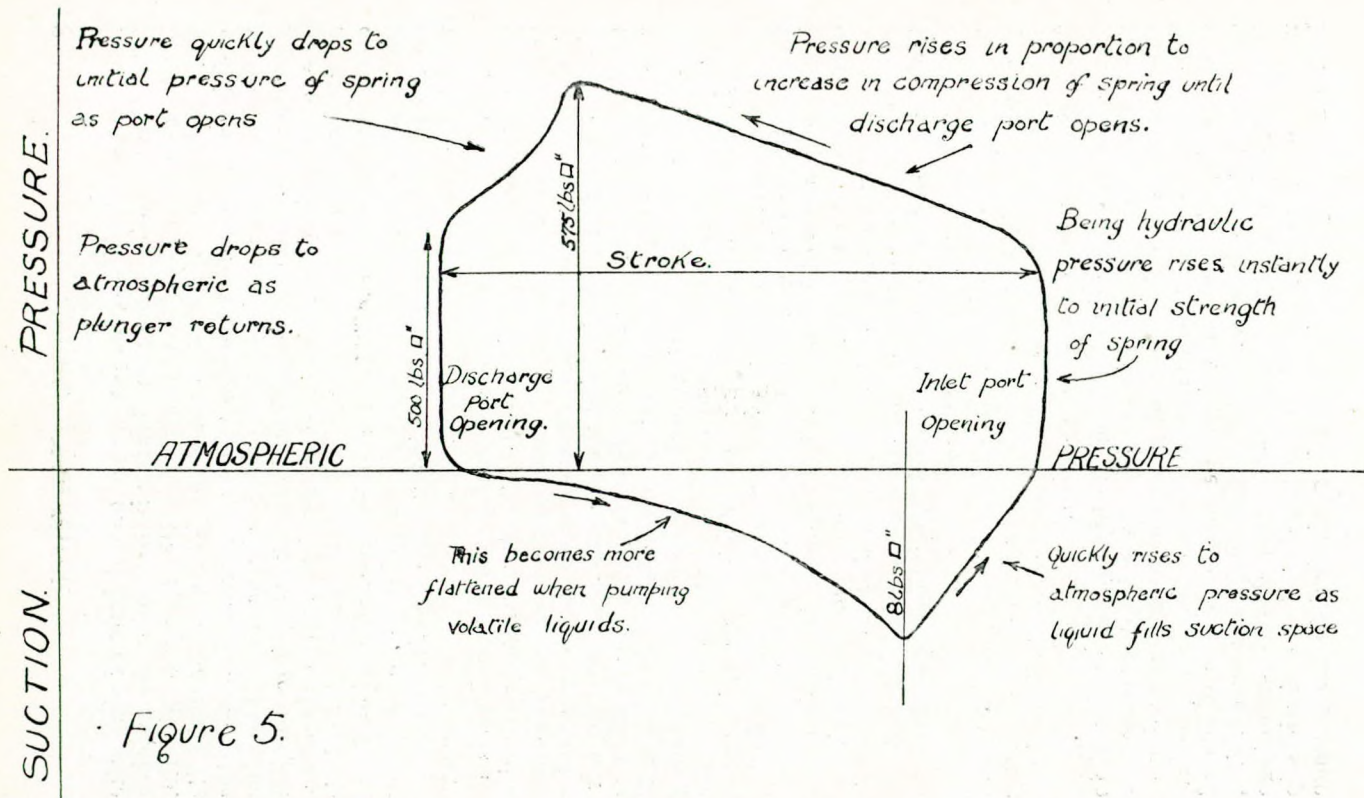 PRESSURE.
Pressure quickly drops to
initial pressure of spring
as port opens
Pressure rises in proportion to
increase in compression of spring until
discharge port opens.
Pressure drops to
atmospheric as
plunger returns.
575 lbs □"
Stroke.
Being hydraulic
pressure rises instantly
to initial strength
of spring
500 lbs □"
Discharge
Port
Opening.
Inlet port
Opening
ATMOSPHERIC
PRESSURE
This becomes more
flattened when pumping
volatile liquids.
8 lbs □"
Quickly rises to
atmospheric pressure as
liquid fills suction space
SUCTION.
Figure 5.